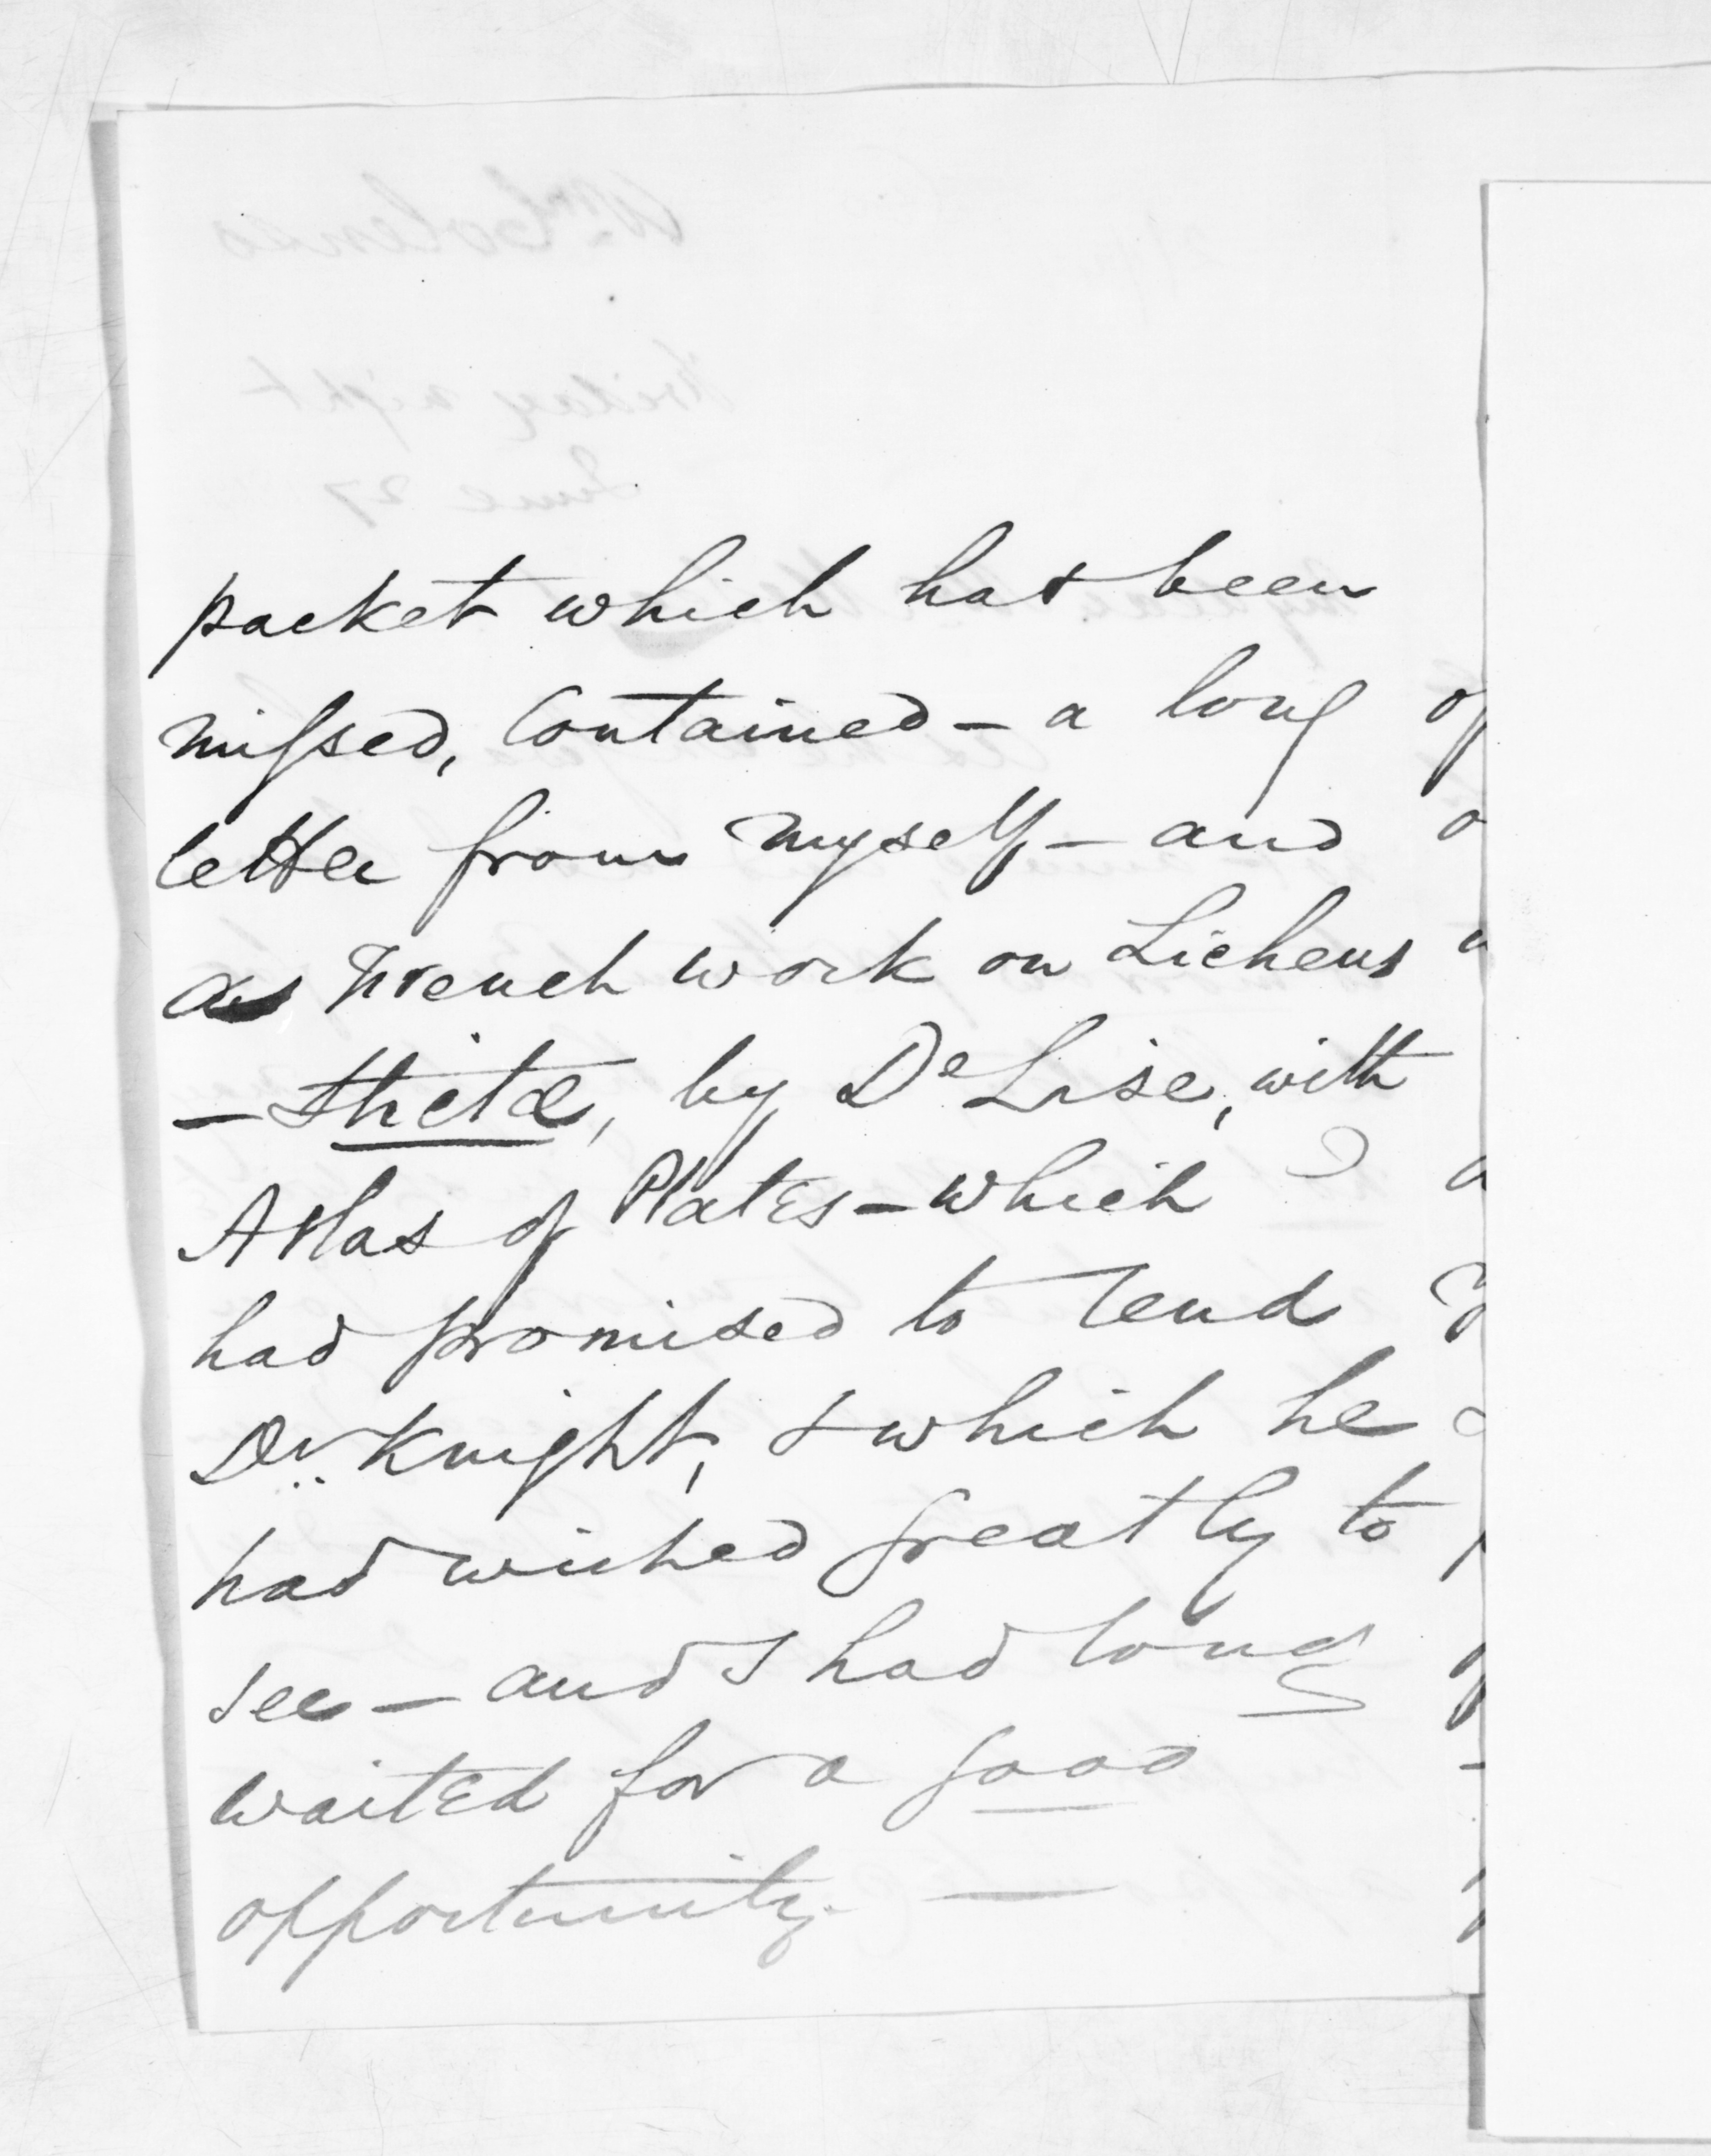 packet which has been
missed, contained – a long
letter from myself – and
a French work on Lichens
– Stictæ, by DeLise, with
Atlas of Plates – which I
had promised to lend
Dr. Knight, & which he
had wished greatly to
see – and I had long
waited for a good
opportunity. —